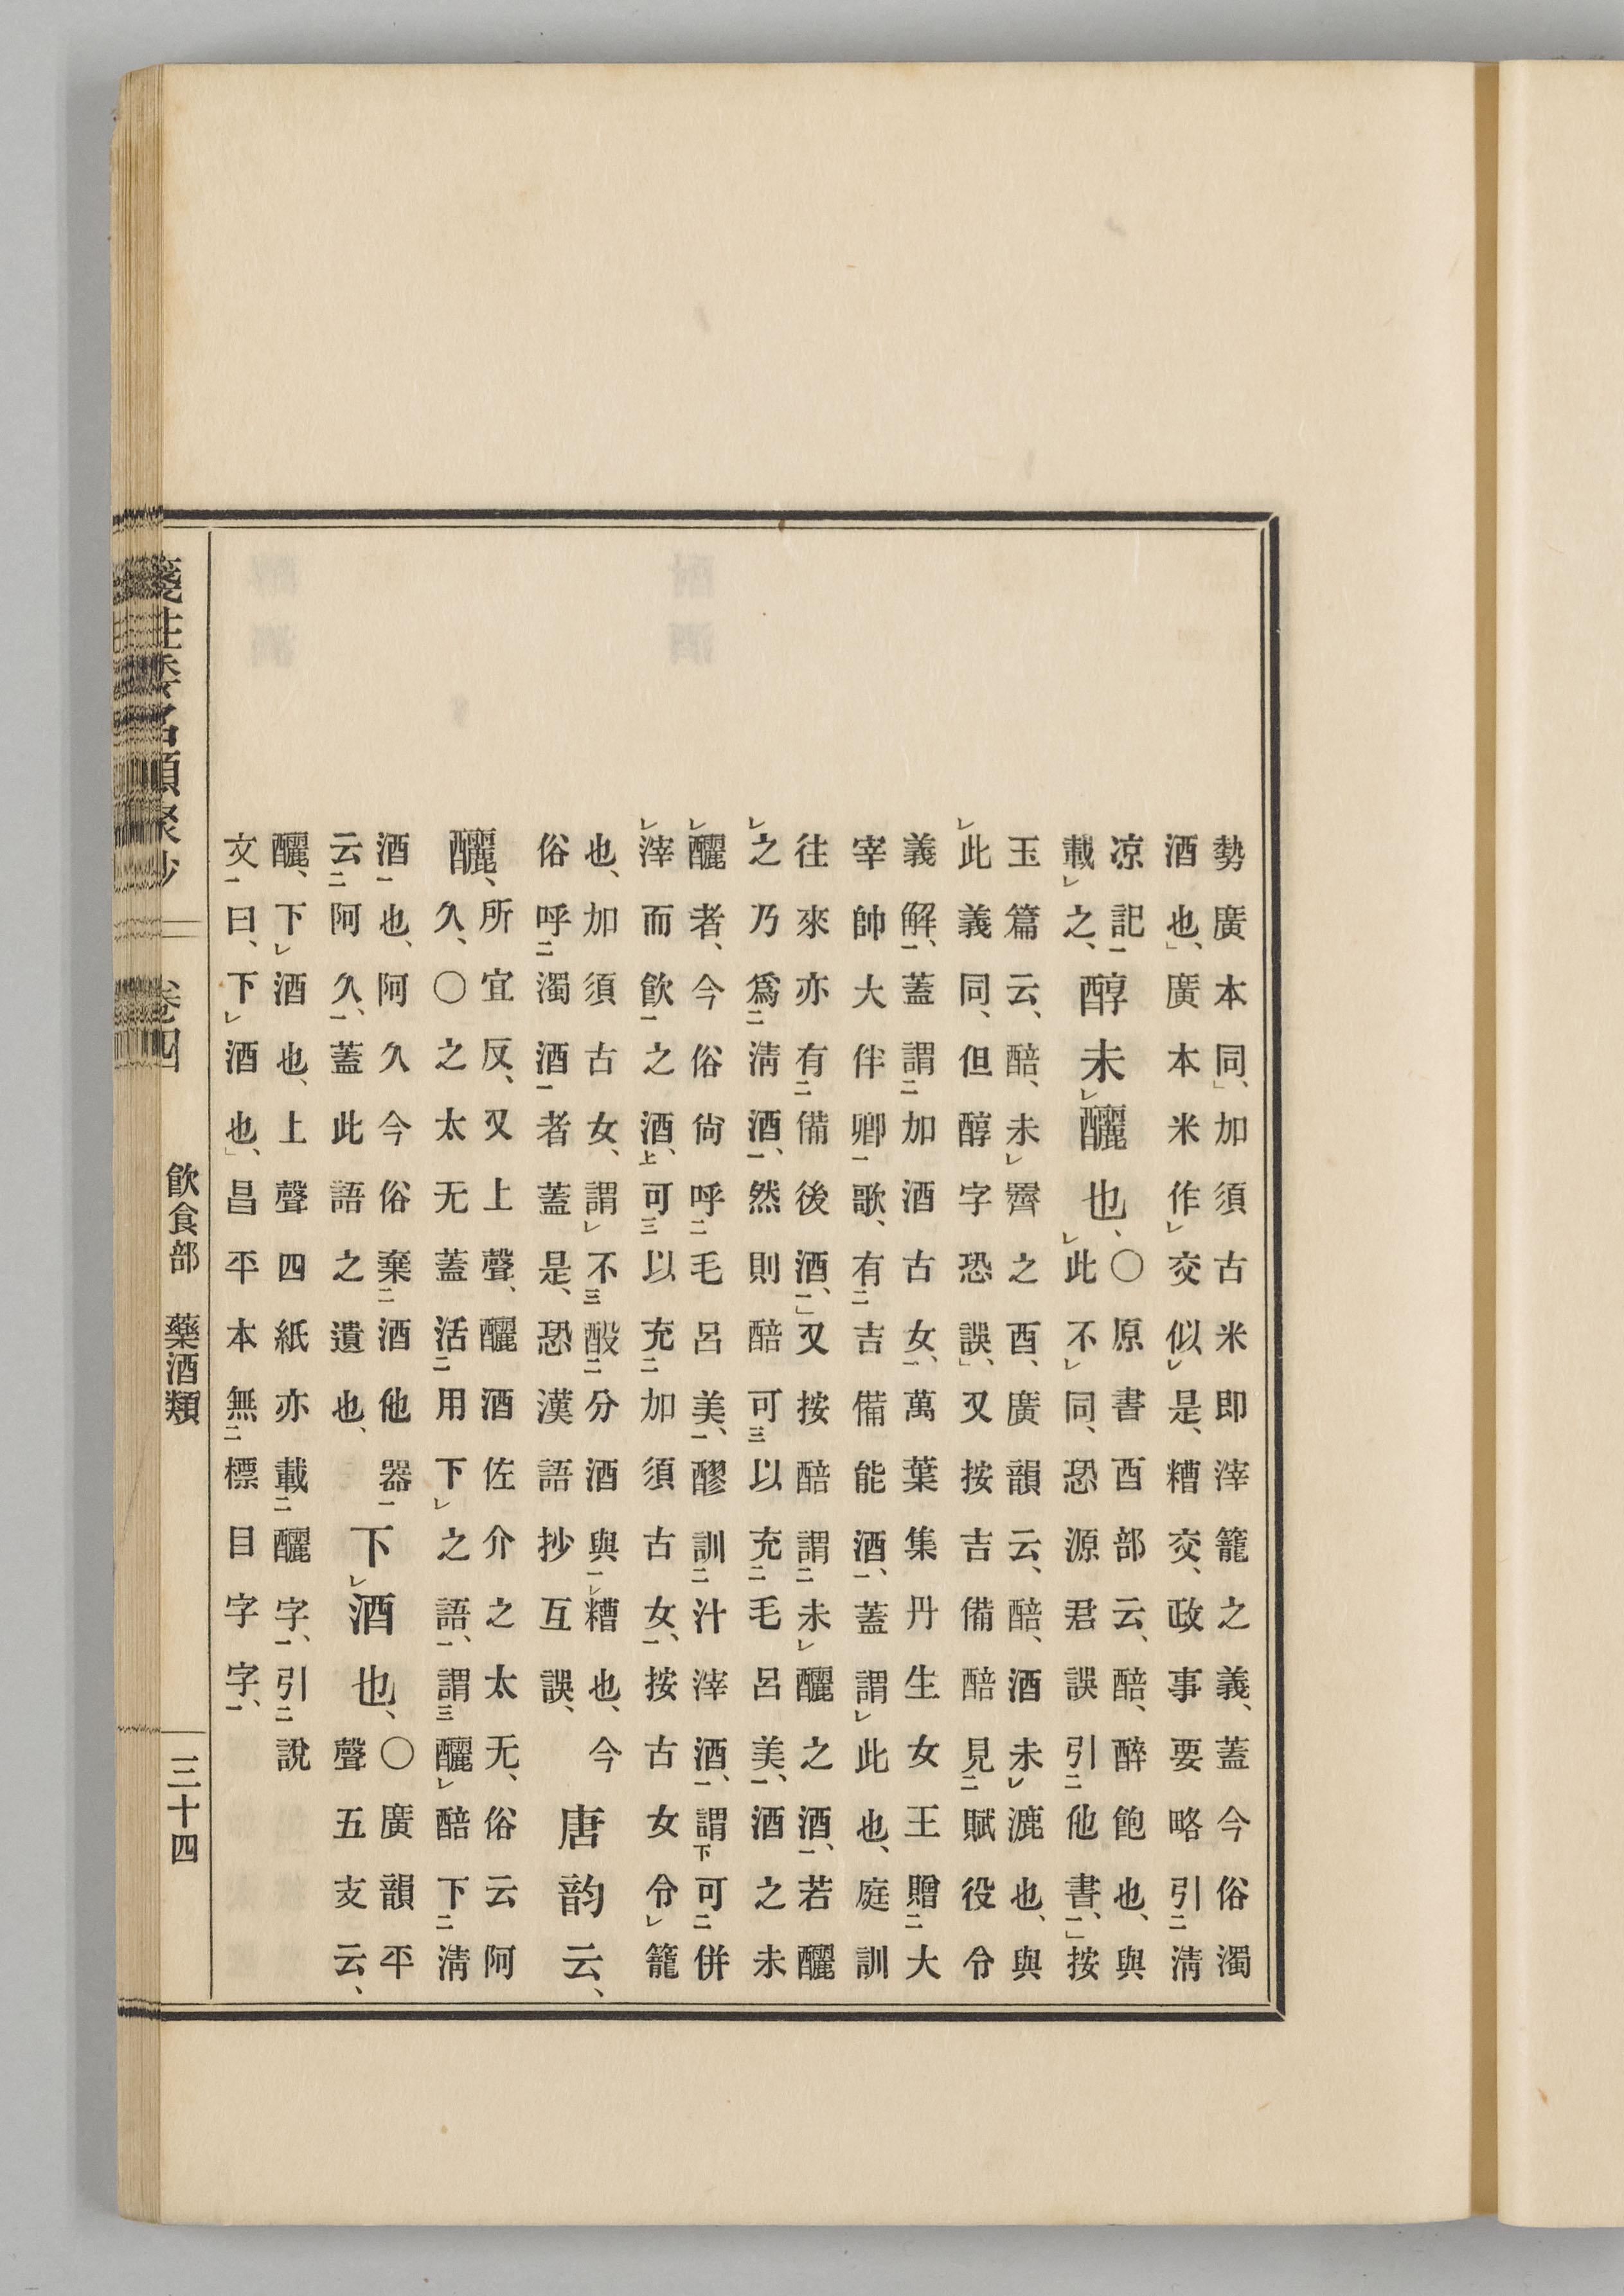 勢廣本同、加須古米即滓籠之義、蓋今俗濁
酒也、廣本米作交似是、糟交、政事要略引淸
凉記載之、
醇未釃也、
○原書酉部云、醅、醉飽也、與此不同、恐源君誤引他書、按
玉篇云、醅、未霽之酉、廣韻云、醅、酒未漉也、與
此義同、但醇字恐誤、又按吉備醅見賦役令
義解、蓋謂加酒古女、萬葉集丹生女王贈大
宰帥大伴卿歌、有吉備能酒、蓋謂此也、庭訓
往來亦有備後酒、又按醅謂未釃之酒、若釃
之乃爲淸酒、然則醅可以充毛呂美、酒之未
釃者、今俗尙呼毛呂美、醪訓汁滓酒、謂可併
滓而飮之酒、可以充加須古女、按古女令籠
也、加須古女、謂不醊分酒與糟也、今
俗呼濁酒者蓋是、恐漢語抄互誤、
唐韵云、
釃、
所宜反、又上聲、釃酒佐介之太无、俗云阿
久、○之太无蓋活用下之語、謂釃醅下淸
酒也、阿久今俗棄酒他器
云阿久、蓋此語之遺也、
下酒也、
○廣韻平
聲五支云、
釃、下酒也、上聲四紙亦載釃字、引說
文曰、下酒也、昌平本無標目字字、
箋注倭名類聚抄 卷四 飮食部 藥酒類 三十四